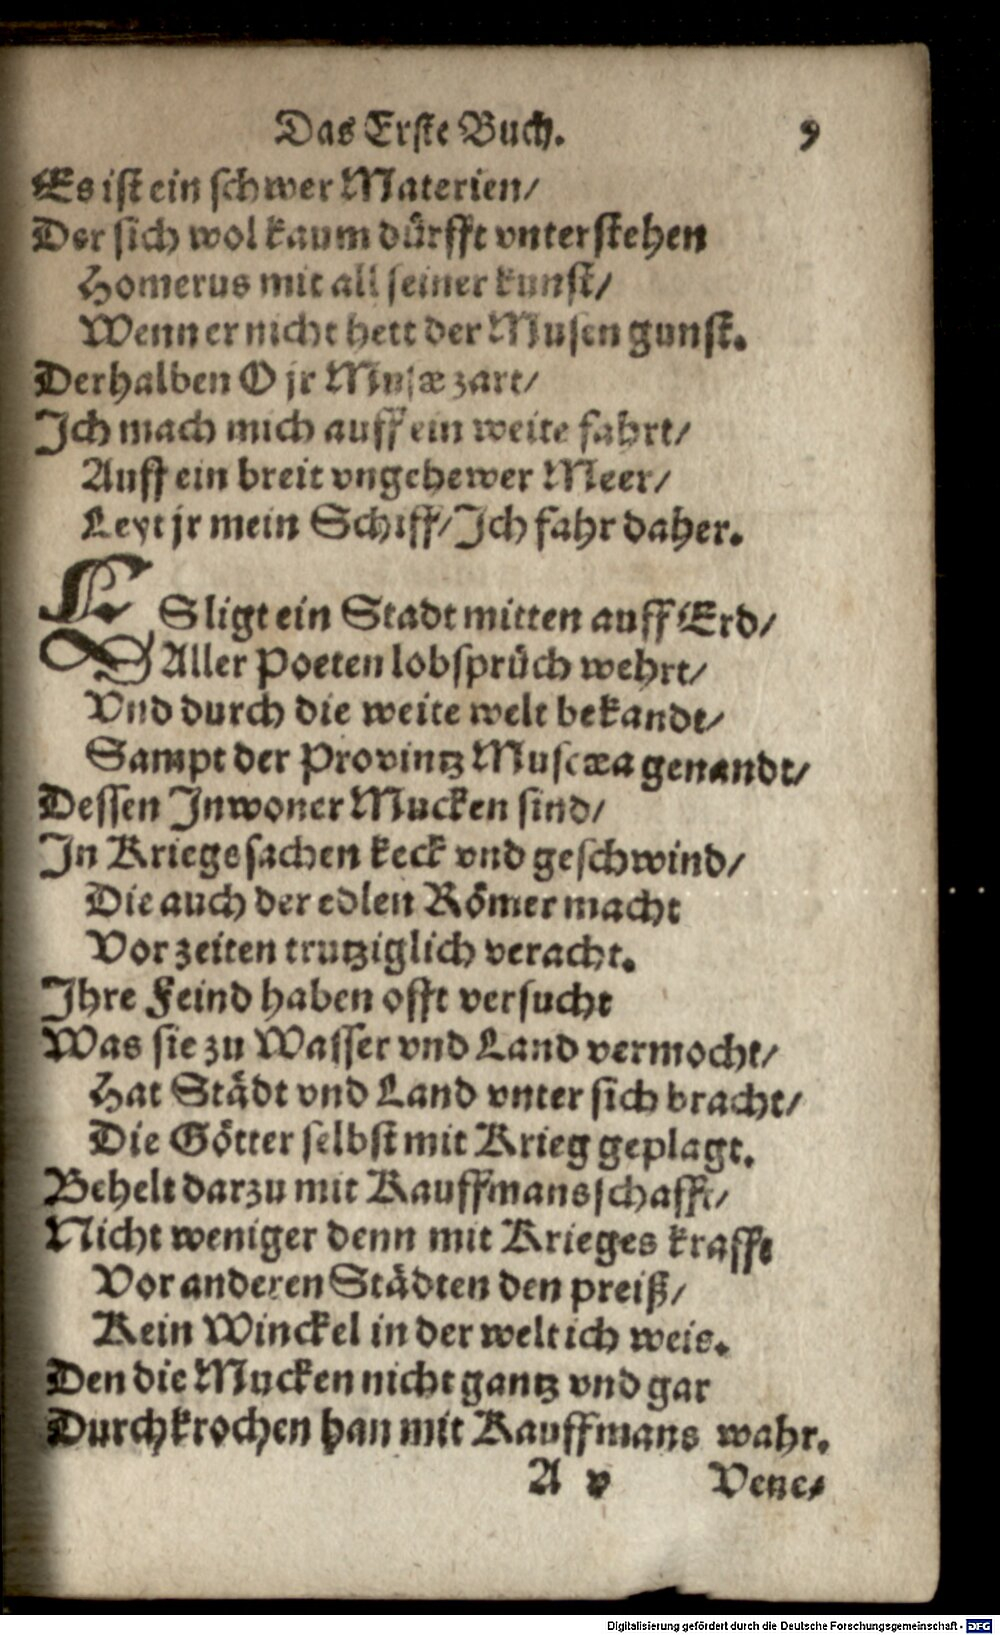 Das Erste Buch. 9
Es ist ein schwer Materien/
Der sich wol kaum dürfft vnterstehen
Homerus mit all seiner kunst/
Wenn er nicht hett der Musen gunst.
Derhalben O jr Musæ zart/
Ich mach mich auff ein weite fahrt/
Auff ein breit vngehewer Meer/
Leyt jr mein Schiff/ Ich fahr daher.
ES ligt ein Stadt mitten auff Erd/
Aller Poeten lobsprüch wehrt/
Vnd durch die weite welt bekandt/
Sampt der Provintz Muscæa genandt/
Dessen Inwoner Mucken sind/
In Kriegssachen keck vnd geschwind/
Die auch der edlen Römer macht
Vor zeiten trutziglich veracht.
Ihre Feind haben offt versucht
Was sie zu Wasser vnd Land vermocht/
Hat Städt vnd Land vnter sich bracht/
Die Götter selbst mit Krieg geplagt.
Behelt darzu mit Kauffmansschafft/
Nicht weniger denn mit Krieges krafft
Vor anderen Städten den preiß/
Kein Winckel in der welt ich weis.
Den die Mucken nicht gantz vnd gar
Durchkrochen han mit Kauffmans wahr.
A v Vene/
Digitalisierung gefördert durch die Deutsche Forschungsgemeinschaft - DFG